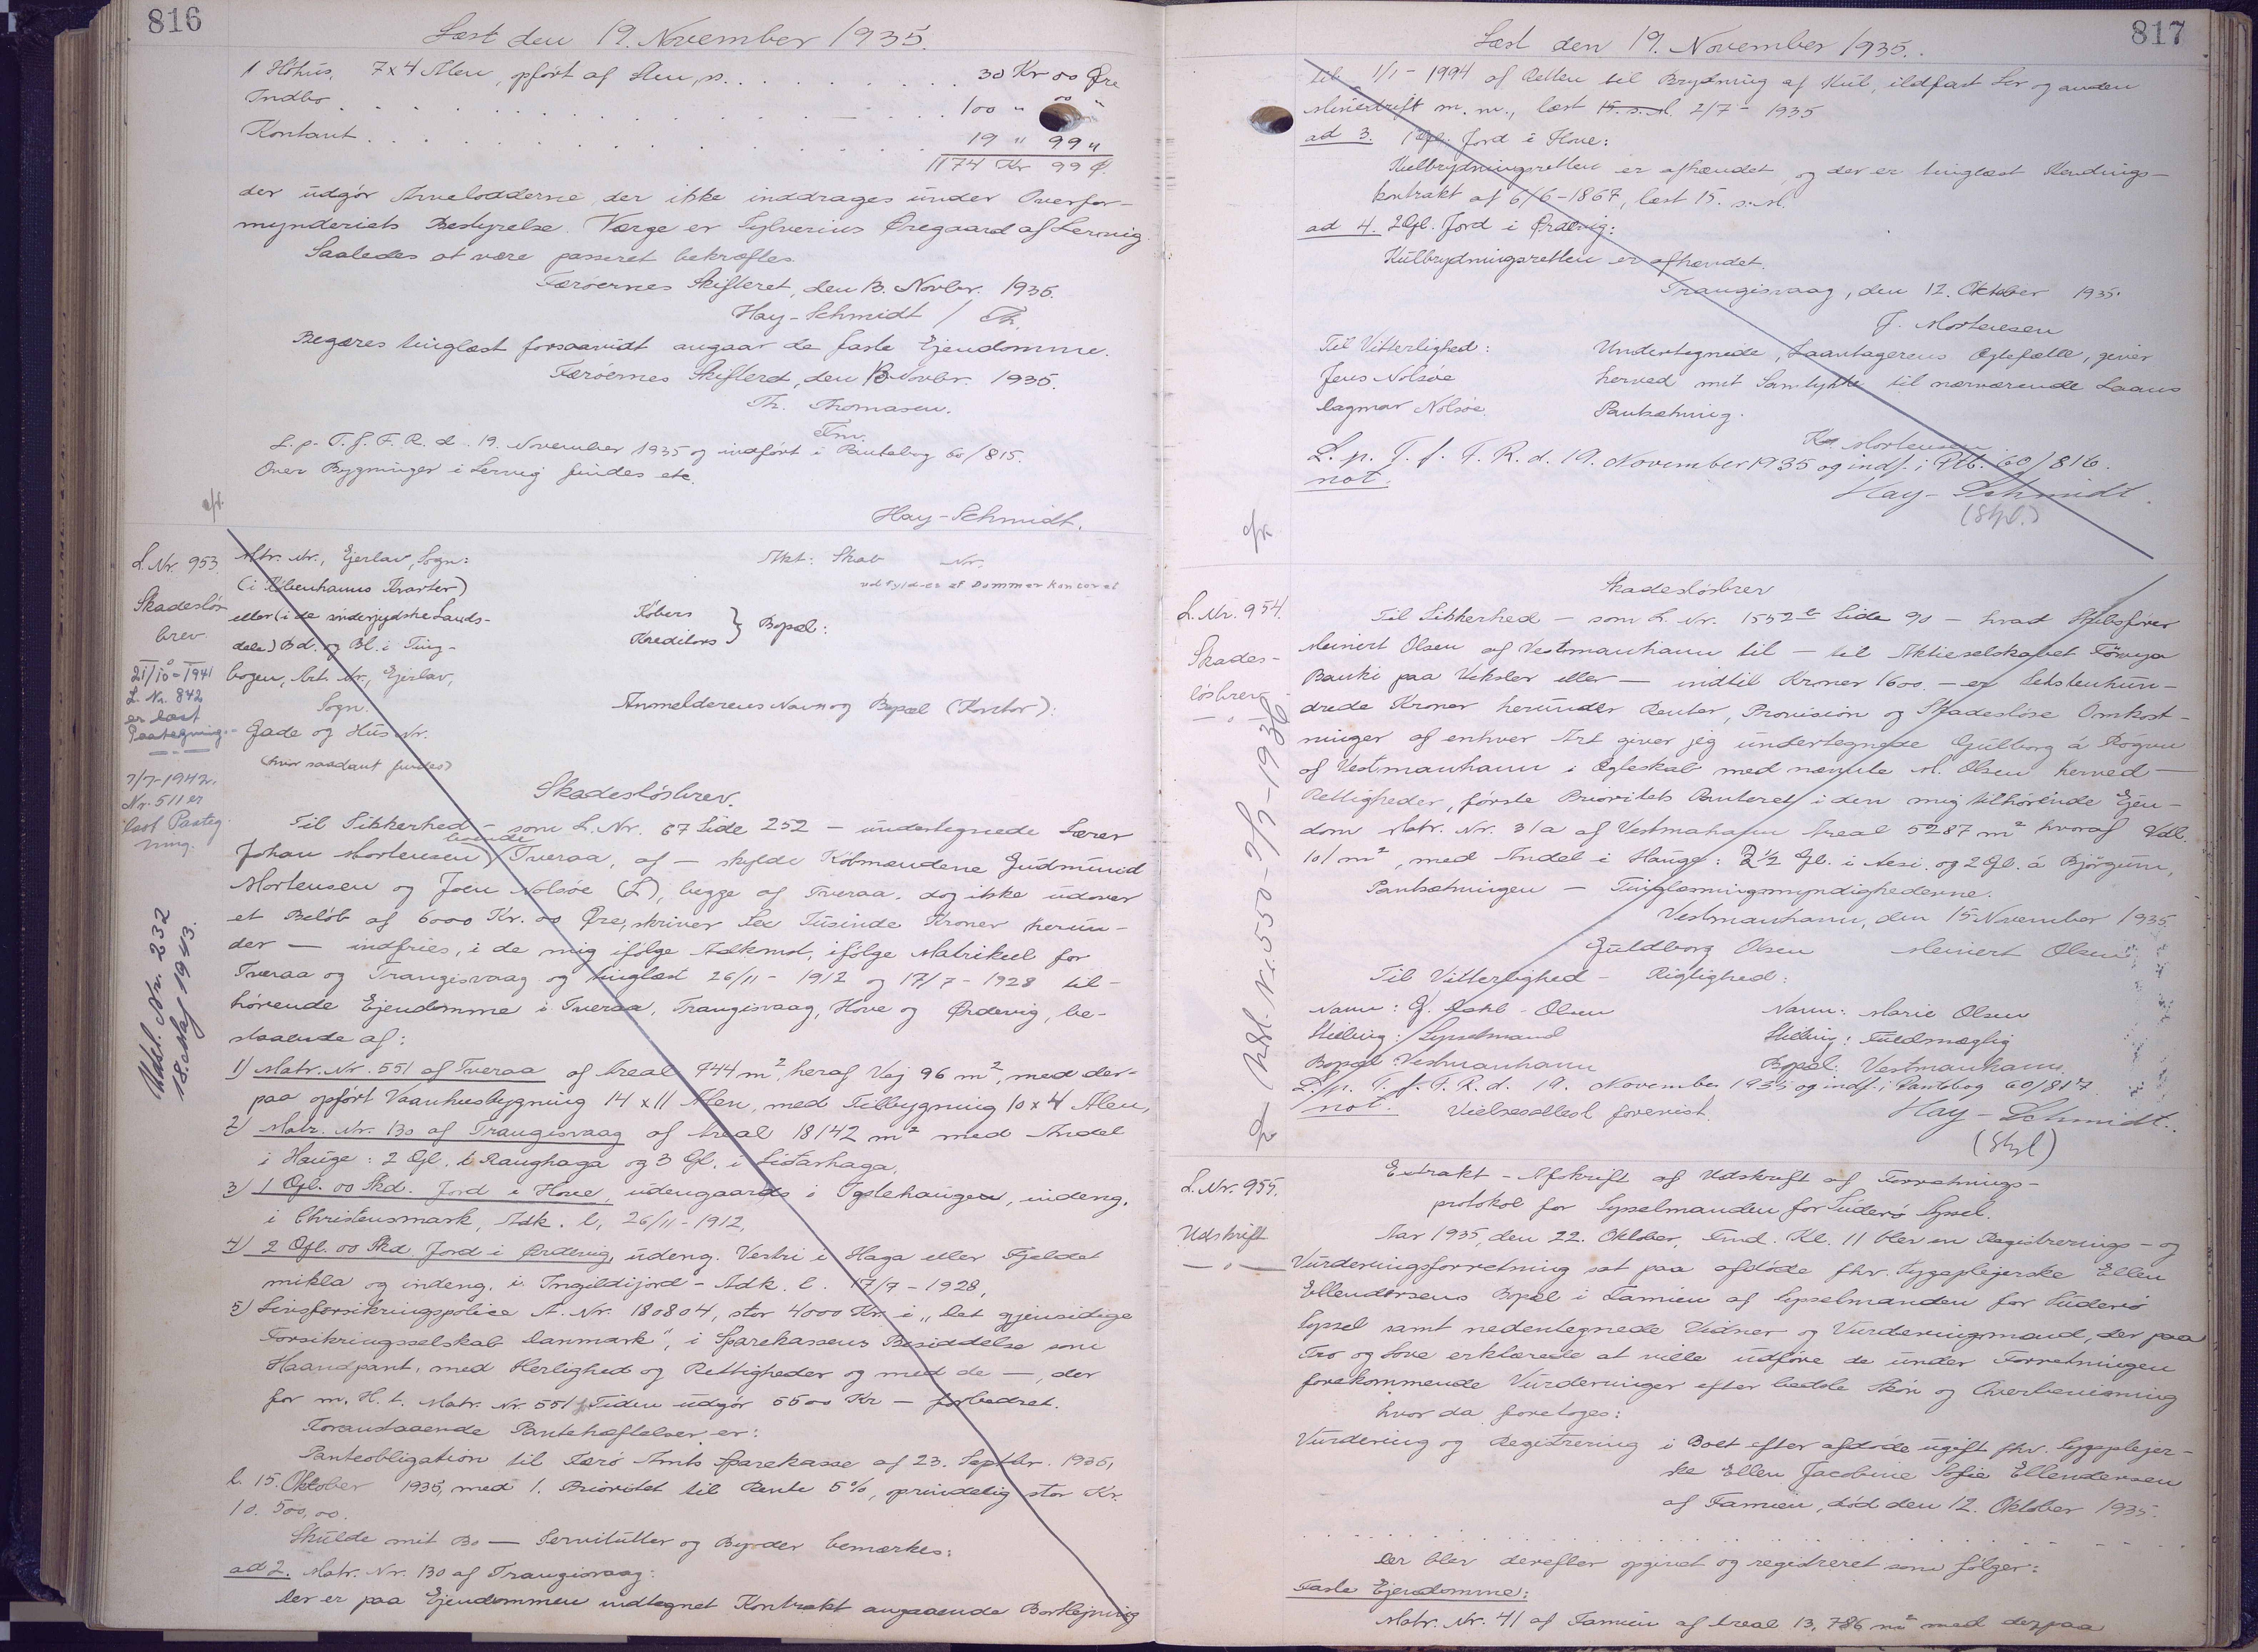 816
Læst den 19. November 1935.
1 Høhus, 7x4 Alen, opført af Sten, . . . . . . . . 30 Kr 00 Øre
Indbo . . . . . . . . . . 100 " 00 "
Kontant . . . . . . . . . . 19 " 99 "
1174 Kr 99 Ø.
der udgør Arvelodderne, der ikke inddrages under Overfor-
mynderiets Bestyrelse. Værge er Sylverius Øregaard af Lervig.
Saaledes at være passeret bekræftes.
Færøernes Skifteret, den 13. Novbr. 1935.
Hay-Schmidt / Th.
Begæres tinglæst forsaavidt angaar de faste Ejendomme.
Færøernes Skifteret, den 13 Novbr. 1935.
Th. Thomasen.
Fm.
L. p. T. f. F. R. d. 19. November 1935 og indført i Pantebog 60/815.
Over Bygninger i Lervig findes etc.
Hay-Schmidt.
L. Nr. 953.
Skadesløs
brev.
21/10-1941
L. Nr. 842
er læst
Paategning.
7/7-1942.
Nr. 511 er
læst Paateg
ning.
Udsl. Nr. 232
18. Maj 1943.
Matr. Nr., Ejerlav, Sogn:
(i Københavns Kvarter)
eller (i de sønderjydske Lands-
dele) Bd. og Bl. i Ting-
bogen, Art. Nr., Ejerlav,
Sogn.
Gade og Hus Nr.
(hvor saadant findes)
Akt: Skab Nr.
udfyldes af Dommerkontoret
Købers
Kreditors } Bopæl:
Anmelderens Navn og Bopæl (Kontor):
Skadesløsbrev.
Til Sikkerhed - som L. Nr. 67 Side 252 - undertegnede Lærer
Johan Mortensen, Tveraa, af - skylde Købmændene Gudmund
Mortensen og Joen Nolsøe (L), begge af Tveraa, dog ikke udover
et Beløb af 6000 Kr. 00 Øre, skriver Sex Tusinde Kroner herun-
der - indfries, i de mig ifølge Adkomst, ifølge Matrikul for
Tveraa og Trangisvaag og tinglæst 26/11 - 1912 og 17/7 - 1928 til-
hørende Ejendomme i Tveraa, Trangisvaag, Hove og Ørdevig, be-
staaende af:
1) Matr. Nr. 551 af Tveraa af Areal 744 m², heraf Vej 96 m², med der-
paa opført Vaanhusbygning 14 x 11 Alen, med Tilbygning 10 x 4 Alen,
2) Matr. Nr. 130 af Trangisvaag af Areal 18142 m² med Andel
i Hauge: 2 Gl. i Raughaga og 3 Gl. i Lidarhaga,
3) 1 Gl. 00 Skd. Jord i Hove, udengaards i Tystehaugen, indeng.
i Christensmark, Adk. l. 26/11-1912,
4) 2 Gl. 00 Skd. Jord i Ørdevig, udeng. Vestri i Haga eller Fjeldet
mikla og indeng. i Ingildijord - Adk. l. 17/7 - 1928,
5) Livsforsikringspolice A. Nr. 180804, stor 4000 Kr. i "Det gjensidige
Forsikringsselskab Danmark", i Sparekassens Besiddelse som
Haandpant, med Herlighed og Rettigheder og med de -, der
for m. H. t. Matr. Nr. 551 f. Tiden udgør 5500 Kr - forbedret.
Foranstaaende Pantehæftelser er:
Panteobligation til Færø Amts Sparekasse af 23. Septbr. 1935,
l. 15. Oktober 1935, med 1. Prioritet til Rente 5 %, oprindelig stor Kr.
10.500,00.
Skulde mit Bo - Servitutter og Byrder bemærkes:
ad 2. Matr. Nr. 130 af Trangisvaag:
Der er paa Ejendommen indtegnet Kontrakt angaaende Bortlejning
817
Læst den 19. November 1935.
til 1/1 - 1994 af Retten til Brydning af Kul, ildfast Ler og anden
Minedrift m. m., læst 15. s. M. 2/7 - 1935
ad 3. 1 Gl. Jord i Hove:
Kulbrydningsretten er afhændet, og der er tinglæst Kendings-
kontrakt af 6/6 - 1867, læst 15. s. M.
ad 4. 2 Gl. Jord i Ørdevig:
Kulbrydningsretten er afhændet.
Trangisvaag, den 12. Oktober 1935.
J. Mortensen
Til Vitterlighed:
Jens Nolsøe
Dagmar Nolsøe.
Undertegnede, Laantagerens Ægtefælle, giver
herved mit Samtykke til nærværende Laans
Pantsætning.
K. Mortensen
L. p. T. f. F. R. d. 19. November 1935 og indf. i Ptb. 60/816.
not.
Hay-Schmidt.
(Stpl.)
L. Nr. 954.
Skades-
løsbrev
Udsl. Nr. 550 - 7/7 - 1936
Skadesløsbrev
Til Sikkerhed - som L. Nr. 1552 Side 90 - hvad Skibsfører
Meinert Olsen af Vestmanhavn til - til Aktieselskabet Föroya
Banki paa Veksler eller - indtil Kroner 1600 - er Sekstenhun-
drede Kroner herunder Renter, Provision og Skadesløse Omkost-
ninger af enhver Art giver jeg undertegnede Gulborg á Rógvu
af Vestmanhavn i Ægteskab med nævnte M. Olsen herved -
Rettigheder, første Prioritets Panteret i den mig tilhørende Ejen-
dom Matr. Nr. 31a af Vestmahavn Areal 5287 m² hvoraf Vdl.
101 m², med Andel i Hauge: 2½ Gl. i Nesi. og 2 Gl. á Bjørgum,
Pantsætningen - Tinglæsningsmyndighederne.
Vestmanhavn, den 15 November 1935.
Guldborg Olsen Meinert Olsen
Til Vitterlighed - Rigtighed:
Navn: J. Dahl-Olsen Navn: Marie Olsen
Stilling: Sysselmand Stilling: Fuldmægtig
Bopæl: Vestmanhavn Bopæl: Vestmanhavn.
L. p. T. f. F. R. d. 19. November 1935 og indf. i Pantebog 60/817.
not. Vielsesattest forevist.
Hay-Schmidt.
(Stpl)
L. Nr. 955.
Udskrift
Extrakt - Afskrift af Udskrift af Forretnings-
protokol for Sysselmanden for Suderø Syssel.
Aar 1935, den 22. Oktober, Fmd. Kl. 11 blev en Registrerings- og
Vurderingsforretning sat paa afdøde fhv. Sygeplejerske Ellen
Ellendersens Bopæl i Famien af Sysselmanden for Suderø
Syssel samt nedentegnede Vidner og Vurderingsmænd, der paa
Tro og Love erklærede at ville udføre de under Forretningen
forekommende Vurderinger efter bedste Skøn og Overbevisning
hvor da foretoges:
Vurdering og Registrering i Boet efter afdøde ugift fhv. Sygeplejer-
ske Ellen Jacobine Sofie Ellendersen
af Famien, død den 12. Oktober 1935.
. . . . . . . . . . . . . . . . . . . .
Der blev derefter opgivet og registreret som følger:
Faste Ejendomme:
Matr. Nr. 41 af Famien af Areal 13,786 m² med derpaa